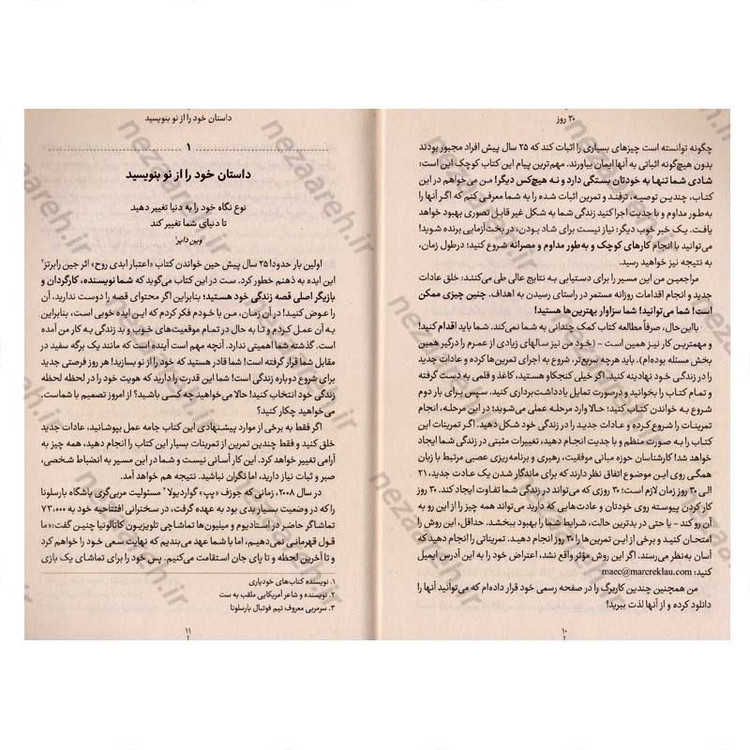 ۳۰ روز
چگونه توانسته است چیزهای بسیاری را اثبات کند که ۲۵ سال پیش افراد مجبور بودند
بدون هیچ‌گونه اثباتی به آنها ایمان بیاورند. مهم‌ترین پیام این کتاب کوچک این است:
شادی شما تنها به خودتان بستگی دارد و نه هیچ‌کس دیگر! من می‌خواهم در این
کتاب، چندین توصیه، ترفند و تمرین اثبات شده را به شما معرفی کنم که اگر آنها را
به‌طور مداوم و با جدیت اجرا کنید زندگی شما به شکل غیر قابل تصوری بهبود خواهد
یافت. یک خبر خوب دیگر: نیاز نیست برای شاد بودن، در بخت‌آزمایی برنده شوید!
می‌توانید با انجام کارهای کوچک و به‌طور مداوم و مصرانه شروع کنید؛ درطول زمان،
به نتیجه نیز خواهید رسید.
مراجعین من این مسیر را برای دستیابی به نتایج عالی طی می‌کنند: خلق عادات
جدید و انجام اقدامات روزانه مستمر در راستای رسیدن به اهداف. چنین چیزی ممکن
است! شما می‌توانید! شما سزاوار بهترین‌ها هستید!
بااین‌حال، صرفاً مطالعه کتاب کمک چندانی به شما نمی‌کند. شما باید اقدام کنید!
و مهمترین کار نیز همین است – (خود من نیز سالهای زیادی از عمرم را درگیر همین
بخش مسئله بوده‌ام). باید هرچه سریع‌تر، شروع به اجرای تمرین‌ها کرده و عادات جدید
را در زندگی خود نهادینه کنید. اگر خیلی کنجکاو هستید، کاغذ و قلمی به دست گرفته
و تمام کتاب را بخوانید و درصورت تمایل یادداشت‌برداری کنید، سپس برای بار دوم
شروع به خواندن کتاب کنید؛ حالا وارد مرحله عمل می‌شوید؛ در این مرحله، انجام
تمرینات را شروع کرده و عادات جدید را در زندگی خود خلق کنید. اگر تمرینات این
کتاب را به صورت منظم و با جدیت انجام دهید، تغییرات مثبتی در زندگی شما ایجاد
خواهد شد! کارشناسان حوزه مبانی موفقیت، رهبری و برنامه‌ریزی عصبی مرتبط با زبان
همگی روی این موضوع اتفاق نظر دارند که برای ماندگار شدن یک عادت جدید، ۲۱
الی ۳۰ روز زمان لازم است؛ ۳۰ روزی که می‌تواند در زندگی شما تفاوت ایجاد کند. ۳۰ روز
کار کردن پیوسته روی خودتان و عادت‌هایی که دارید می‌تواند همه چیز را از این رو به
آن رو کند – یا حتی در بدترین حالت، شرایط شما را بهبود ببخشد. حداقل، این روش را
امتحان کنید و برخی از این تمرین‌ها را ۳۰ روز انجام دهید. تمریناتی را انجام دهید که
آسان به‌نظر می‌رسند. اگر این روش مؤثر واقع نشد، اعتراض خود را به این آدرس ایمیل
کنید: maec@marcreklau.com
من همچنین چندین کاربرگ را در صفحه رسمی خود قرار داده‌ام که می‌توانید آنها را
دانلود کرده و از آنها لذت ببرید!
۱۰
داستان خود را از نو بنویسید
۱
داستان خود را از نو بنویسید
نوع نگاه خود را به دنیا تغییر دهید
تا دنیای شما تغییر کند
وین دایر۱
اولین بار حدوداً ۲۵ سال پیش حین خواندن کتاب «اعتبار ابدی روح» اثر جین رابرتز۲
این ایده به ذهنم خطور کرد. ست در این کتاب می‌گوید که شما نویسنده، کارگردان و
بازیگر اصلی قصه زندگی خود هستید؛ بنابراین اگر محتوای قصه را دوست ندارید، آن
را عوض کنید! در آن زمان، من با خودم فکر کردم که این ایده خوبی است، بنابراین
به آن عمل کردم و تا به حال در تمام موقعیت‌های خوب و بد زندگی به کار من آمده
است. گذشته شما اهمیتی ندارد. آنچه مهم است آینده است که مانند یک برگه سفید در
مقابل شما قرار گرفته است! شما قادر هستید که خود را از نو بسازید! هر روز فرصتی جدید
برای شروع دوباره زندگی است! شما این قدرت را دارید که هویت خود را در لحظه لحظه
زندگی خود انتخاب کنید! حالا می‌خواهید چه کسی باشید؟ از امروز تصمیم با شماست.
می‌خواهید چکار کنید؟
اگر فقط به برخی از موارد پیشنهادی این کتاب جامه عمل بپوشانید، عادات جدید
خلق کنید و فقط چندین تمرین از تمرینات بسیار این کتاب را انجام دهید، همه چیز به
آرامی تغییر خواهد کرد. این کار آسانی نیست و شما در این مسیر به انضباط شخصی،
صبر و ثبات نیاز دارید، اما نگران نباشید. نتیجه هم خواهد آمد.
در سال ۲۰۰۸، زمانی که جوزف «پپ» گواردیولا۳ مسئولیت مربی‌گری باشگاه بارسلونا
را که در وضعیت بسیار بدی بود به عهده گرفت، در سخنرانی افتتاحیه خود به ۷۳,۰۰۰
تماشاگر حاضر در استادیوم و میلیون‌ها تماشاچی تلویزیون کاتالونیا چنین گفت:«ما
قول قهرمانی نمی‌دهیم، اما با شما عهد می‌بندیم که نهایت سعی خود را خواهم کرد
و تا آخرین لحظه و تا پای جان استقامت می‌کنیم. پس خود را برای تماشای یک بازی
۱. نویسنده کتاب‌های خودیاری
۲. نویسنده و شاعر آمریکایی ملقب به ست
۳. سرمربی معروف تیم فوتبال بارسلونا
۱۱
nezaareh.ir